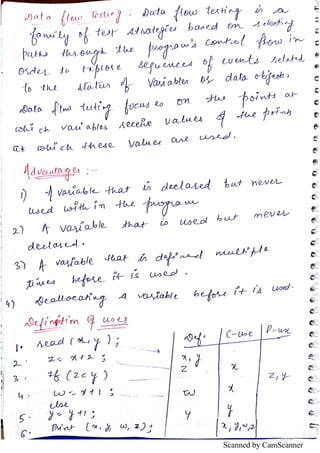 Data flow Testing : Data flow testing is a
family of test strategies based on selecting
paths through the program's control flow in
order to explore sequences of events related
to the status of Variables or data objects.
Data flow testing focuses on the points at
which variables receive values & the points
at which these values are used.
Advantages :-
1) A variable that is declared but never
used within the program
2) A variable that is used but never
declared.
3) A variable that is defined multiple
times before it is used.
4) Deallocating a variable before it is used.
Definition & uses
Def. C-use P-use
1. read (x, y); x, y
2. z = x+2; z x
3. If (z<y) z, y
4. w = x+1; w x
else
5. y = y+1; y y
6. Print (x, y, w, z); x, y, w, z
Scanned by CamScanner